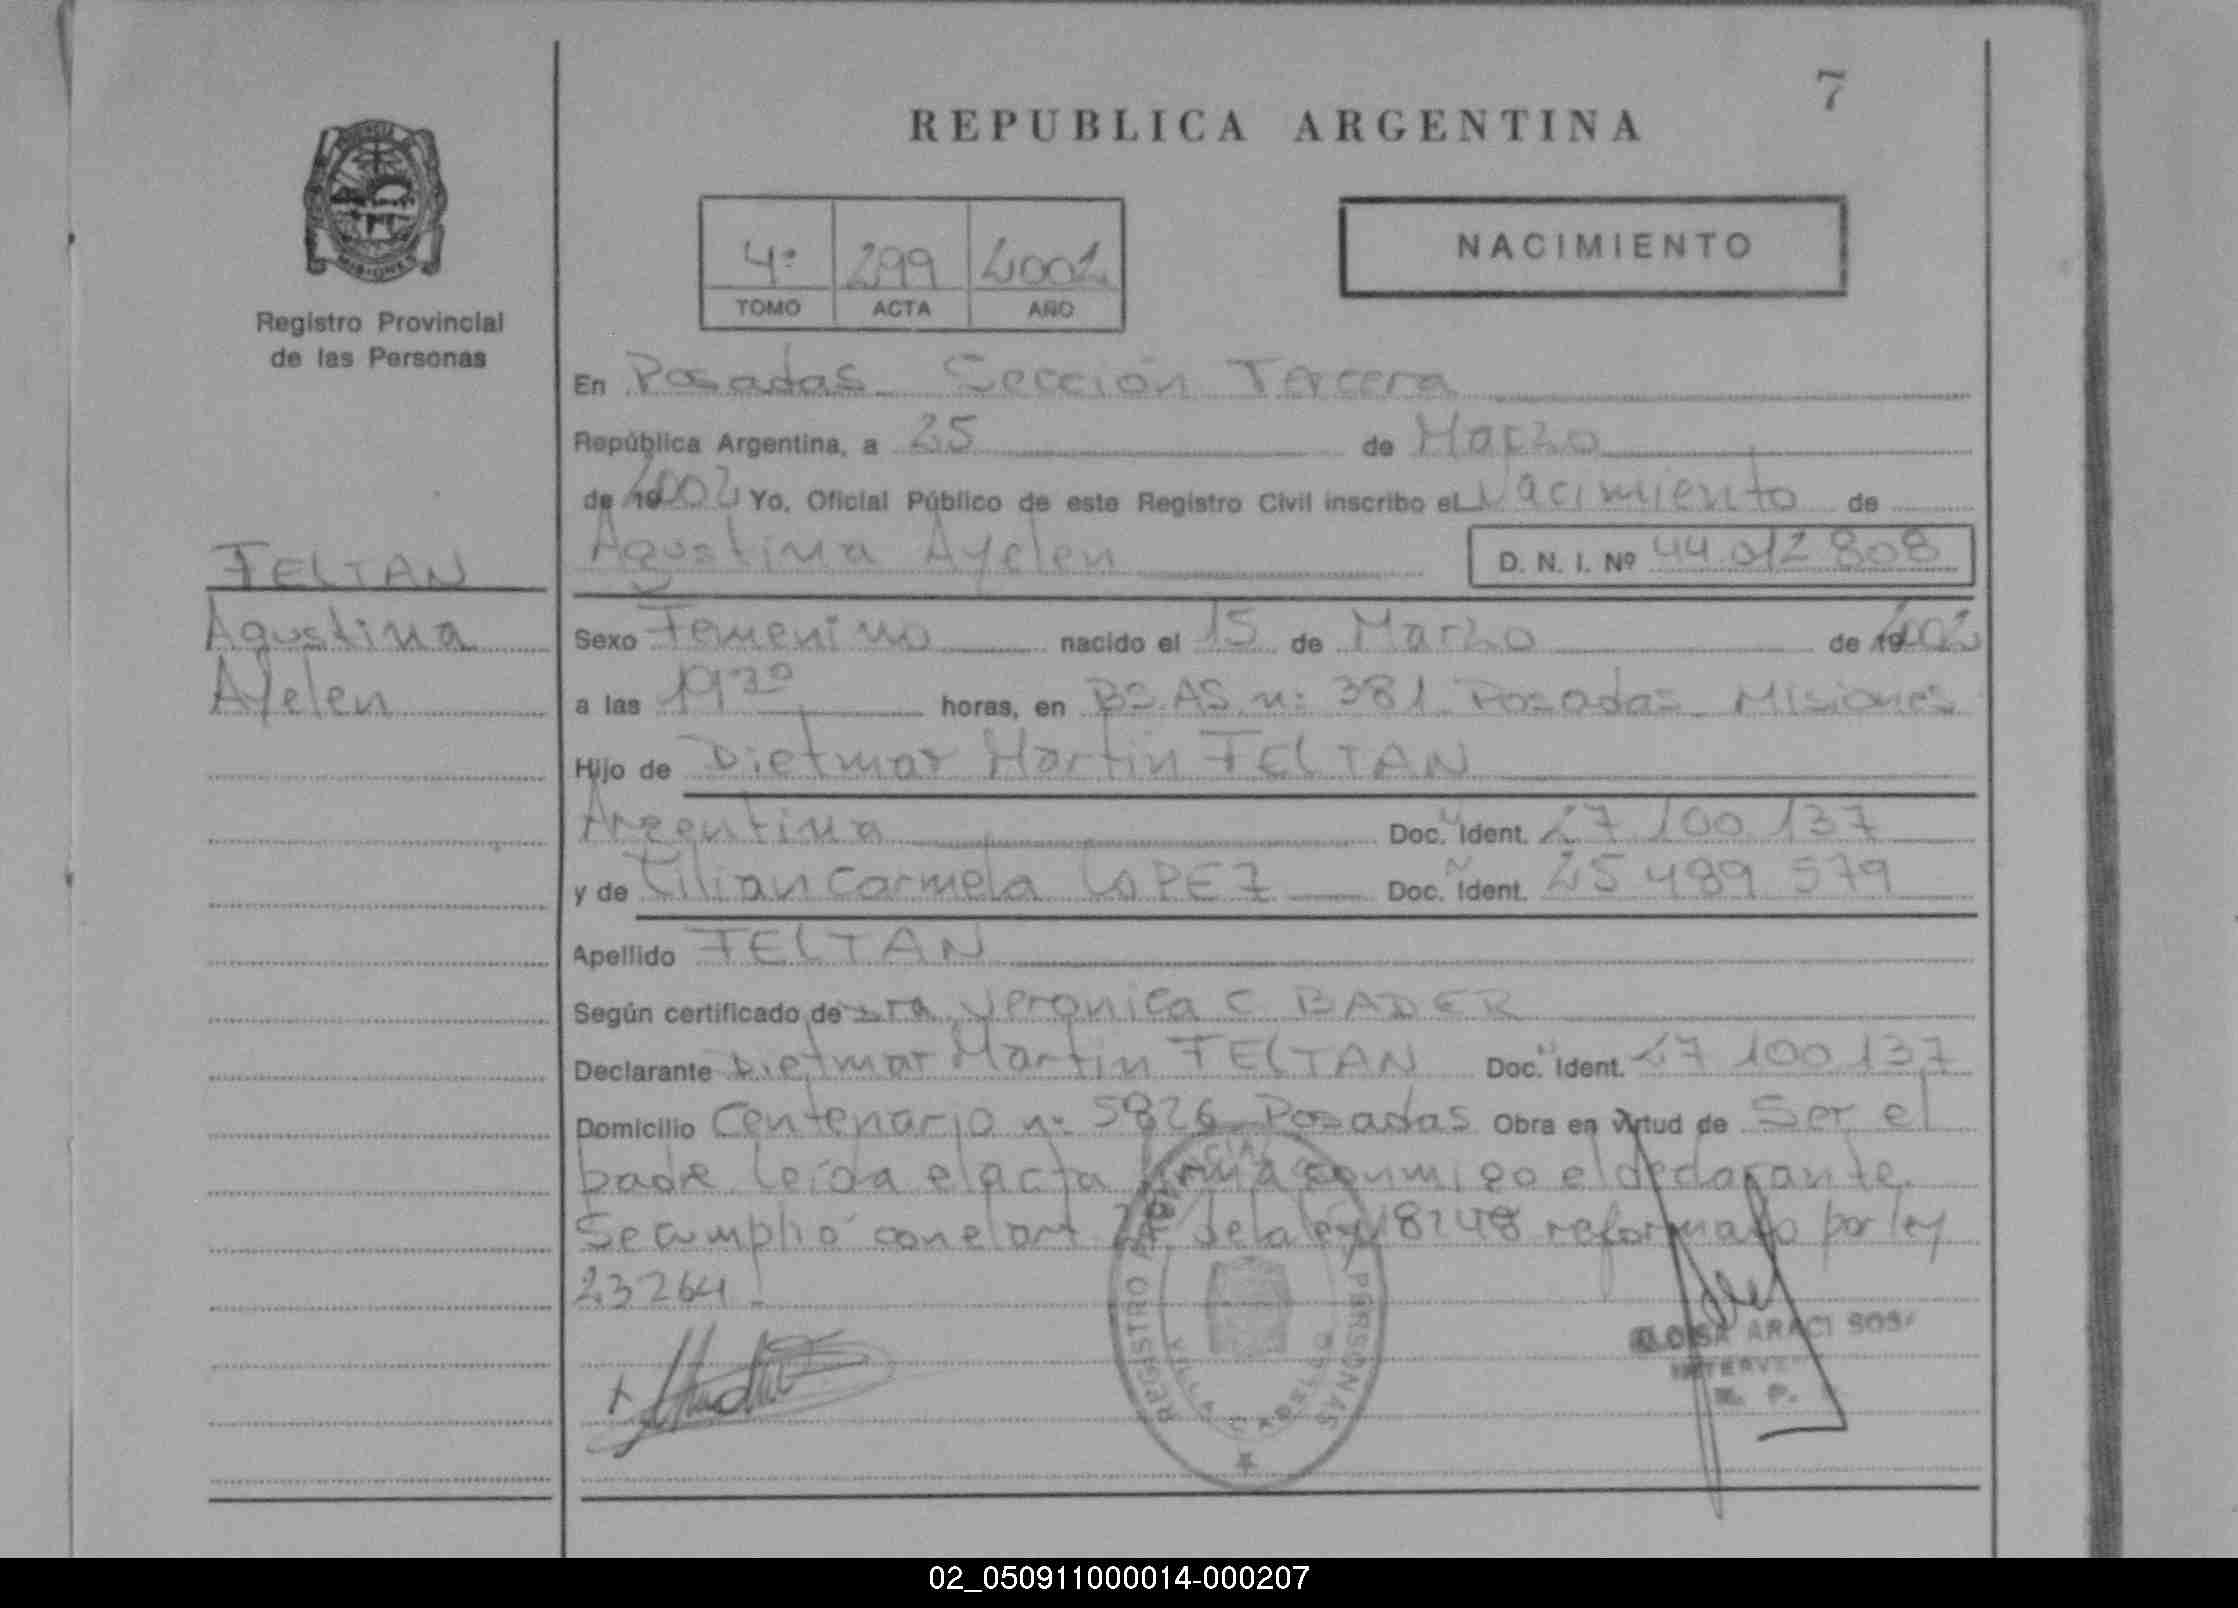 7
REPUBLICA ARGENTINA
NACIMIENTO
4º 299 2002
TOMO ACTA AÑO
Registro Provincial
de las Personas
MISIONES
En Posadas Sección Tercera
República Argentina, a 25 de Marzo
de 19 2002 Yo, Oficial Público de este Registro Civil inscribo el Nacimiento de
Agustina Ayelen D. N. I. Nº 44.012 808
FELTAN
Agustina
Ayelen
Sexo Femenino nacido el 15 de Marzo de 19 2002
a las 19 30 horas, en BS.AS. nº 381 Posadas Misiones
Hijo de Dietmar Martin FELTAN
Argentina Doc. Ident. 27 100 137
y de Lilian Carmela LOPEZ Doc. Ident. 25 489 579
Apellido FELTAN
Según certificado de Dra Veronica C BADER
Declarante Dietmar Martin FELTAN Doc. Ident. 27 100 137
Domicilio Centenario nº 5826 Posadas Obra en virtud de Ser el
padre leída el acta firma conmigo el declarante.
Se cumplió con el art de la ley 18248 reformado por ley
23264
REGISTRO PROVINCIAL PERSONAS
VILLA CABELLO
ARACI SOSA
R. P.
02_050911000014-000207